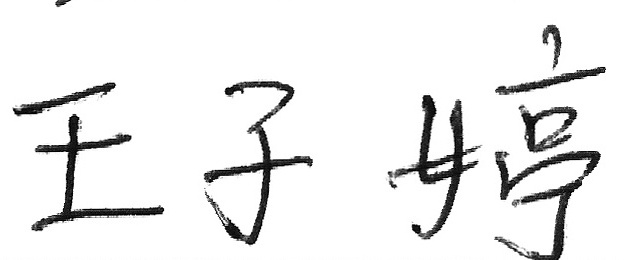 王子婷